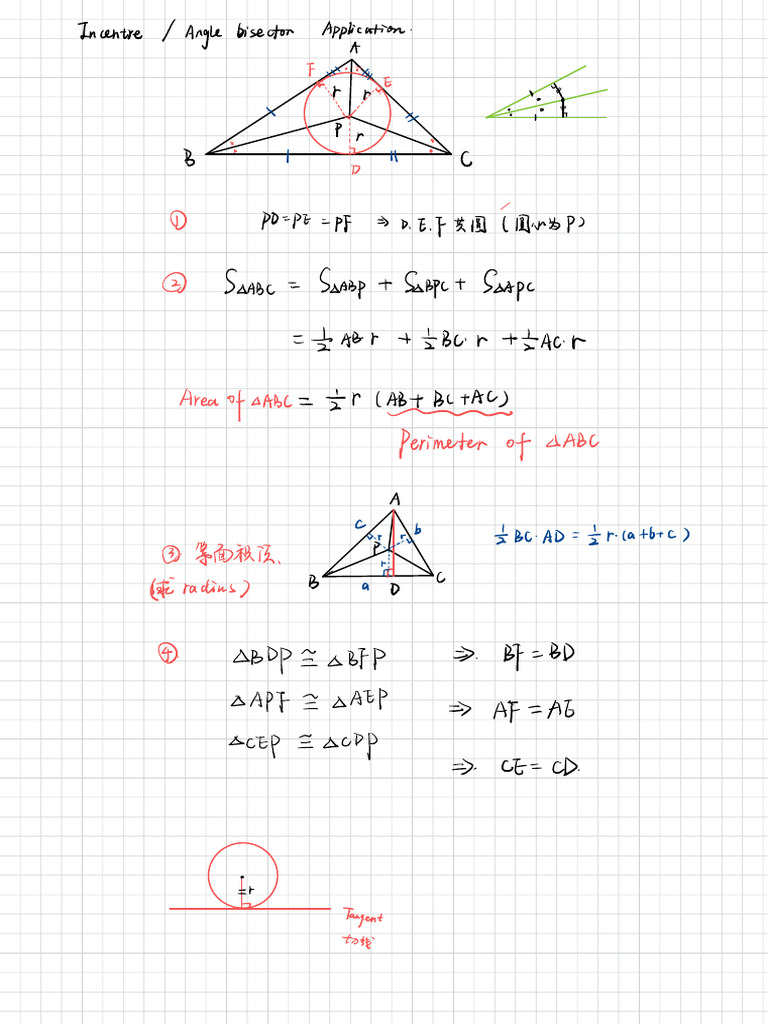 Incentre / Angle bisector Application.
A
F
E
r
r
P
r
B
C
D
① PD=PE=PF ⇒ D.E.F共圆 (圆心为P)
② S△ABC = S△ABP + S△BPC + S△APC
= 1/2 AB·r + 1/2 BC·r + 1/2 AC·r
Area of △ABC = 1/2 r (AB + BC + AC)
Perimeter of △ABC
A
c
b
r
r
P
r
B
C
a
D
1/2 BC·AD = 1/2 r·(a+b+c)
③ 等面积法.
(求 radius)
④ △BDP ≅ △BFP ⇒ BF = BD
△APF ≅ △AEP ⇒ AF = AE
△CEP ≅ △CDP ⇒ CE = CD.
r
Tangent
切线